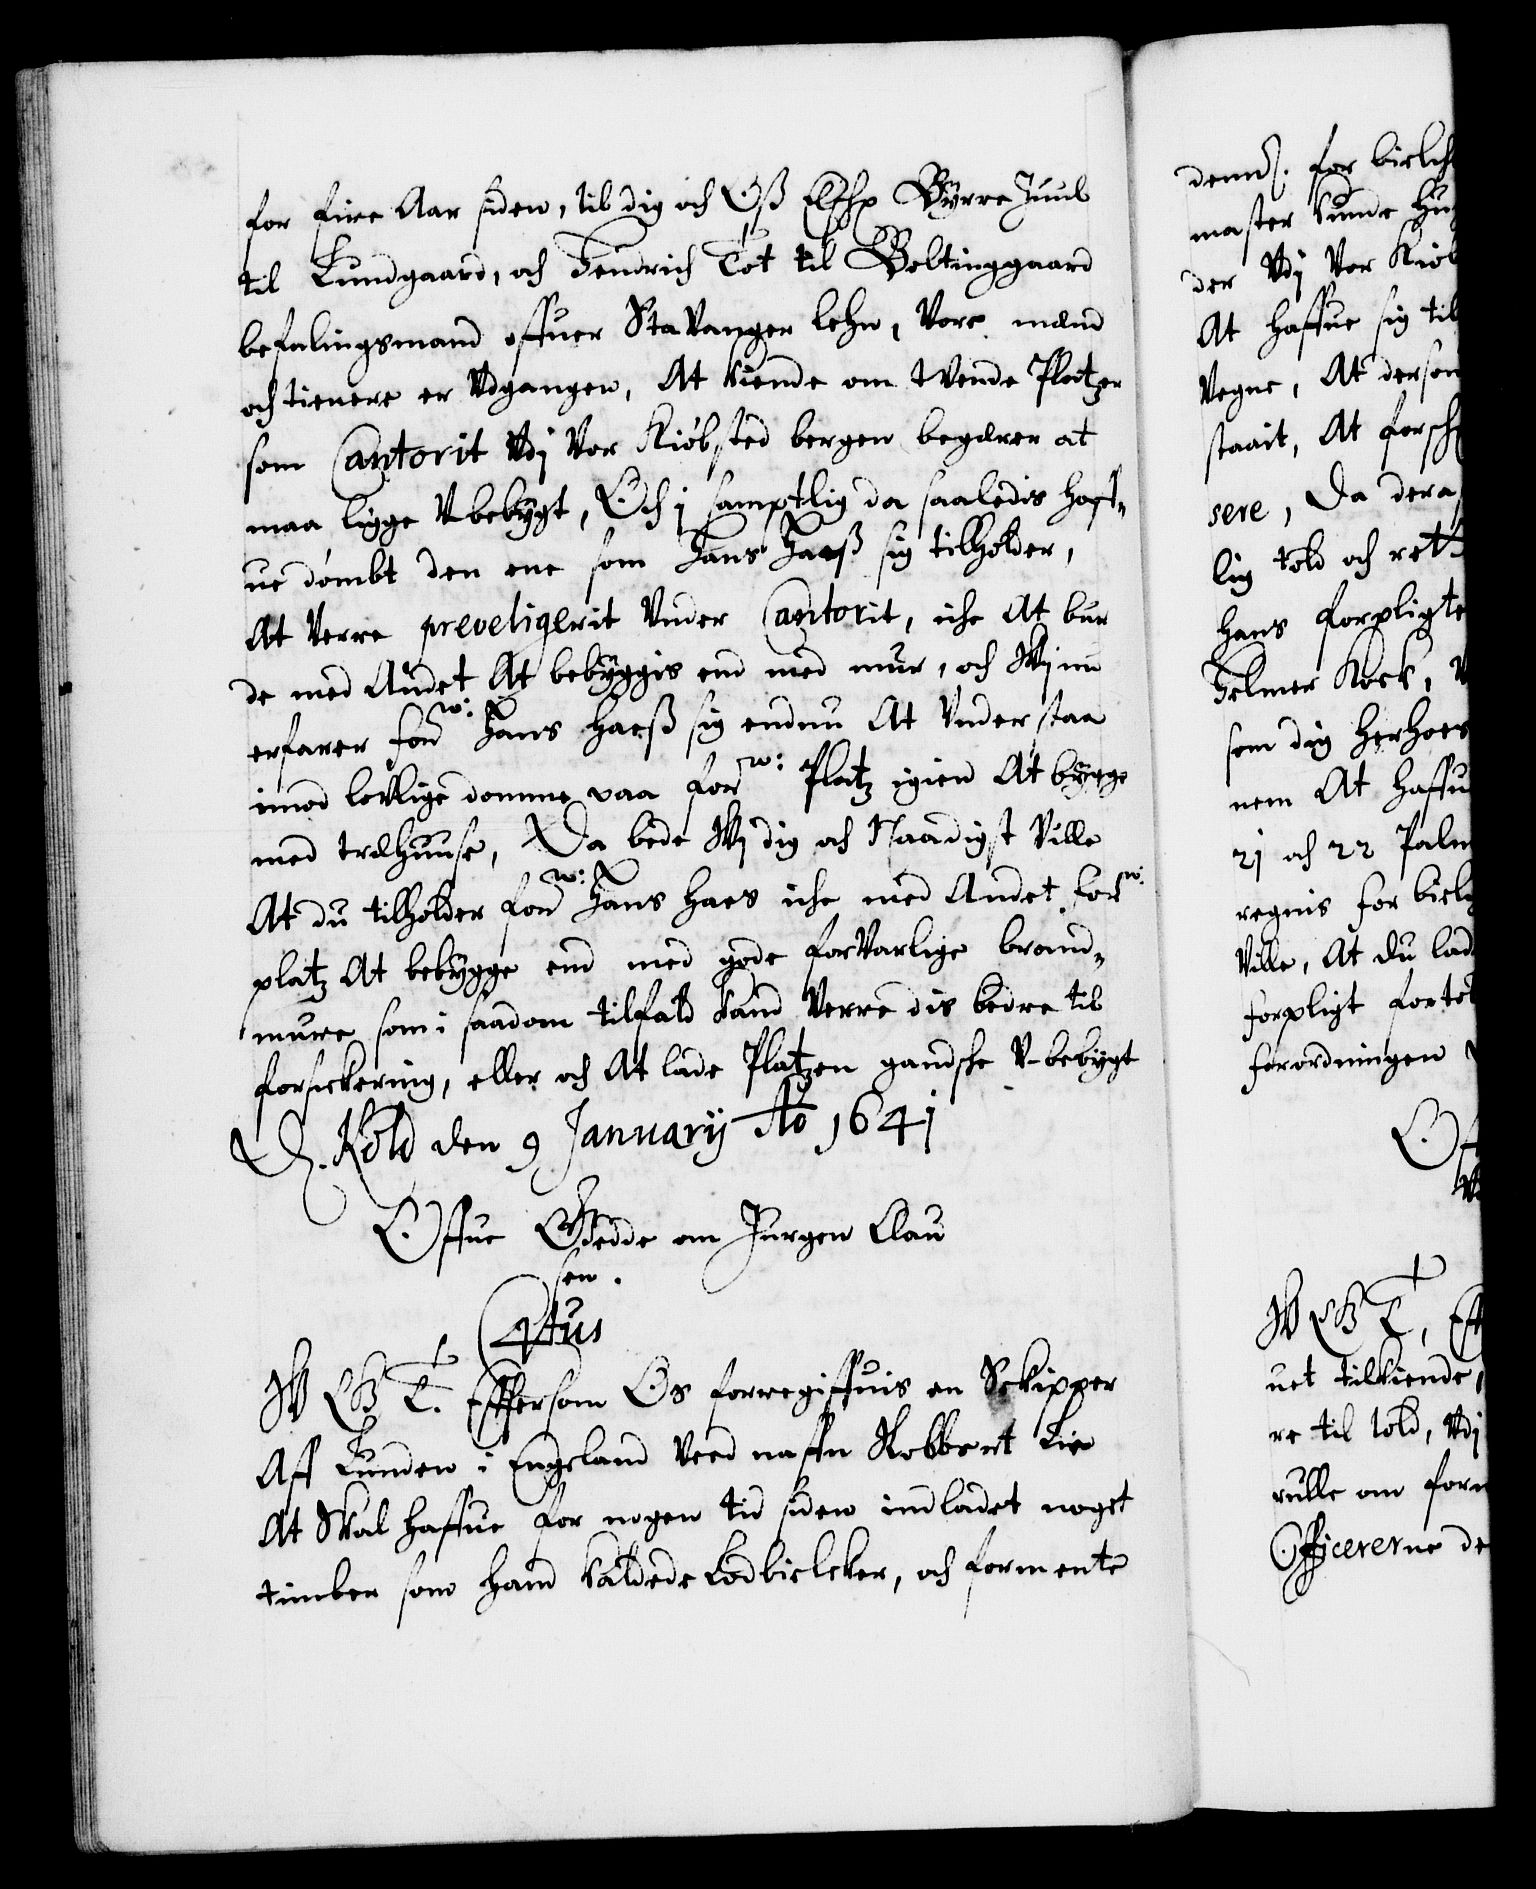 for fire Aar siden, til dig och Oß Elsche Byrre Juul
til Lundgaard, och Hendrich Tot til Boltinggaard
befalingsmand offuer Stavanger lehn, Vore mænd
och tienere er Vdgangen, At kiende om tvende Platzer
som Cantorit Vdj Vor Kiøbsted bergen begærer at
maa ligge V-bebygt, Och j samptlig da saaledis haff-
ue dømbt den ene som Hans Haeß sig tilholder,
At Verre preveligerit Vnder Cantorit, iche At bur
de med Andet At bebyggis end med mur, och Wj nu
erfarer forn: Hans Haeß sig endnu At Vnderstaa
imod lovlige domme paa forn: Platz igien At bygge
med træhuuse, Da bede Wj dig och Naadigst Ville
At du tilholder forn: Hans Haes iche med Andet forn:
platz At bebygge end med gode forvarlige brand-
mure som i saadan tilfald kand Verre dis bedre til
forsickering, eller och At lade Platzen gandske V-bebygt
D. Kold den 9 Januarij Ao 1641
Offue Giedde om Jurgen Clau
sen.
4tus
W G T. Eftersom Os forregiffuis en Skipper
Aff Lunden i Engeland Veed naffn Robbert Lie
At Skal haffue for nogen tid siden indladet noget
timber som hand kaldede Lodbielcker, och formente
dend. for bielck
master kunde
der Vdj Vor Kiøb
At haffue sig til
Vegne, At derson
staait, At forsch
sere, Da der
lig told och ret
hans forpligte
Helmer Kock,
som dig herhoes
nem At haffu
21 och 22 Palm
regnis for biel
Ville, At du lad
forpligt fort
forordningen
Off
W G T, Eft
uet tilkiende,
re til told, Vdj
rulle om for
Officererne de